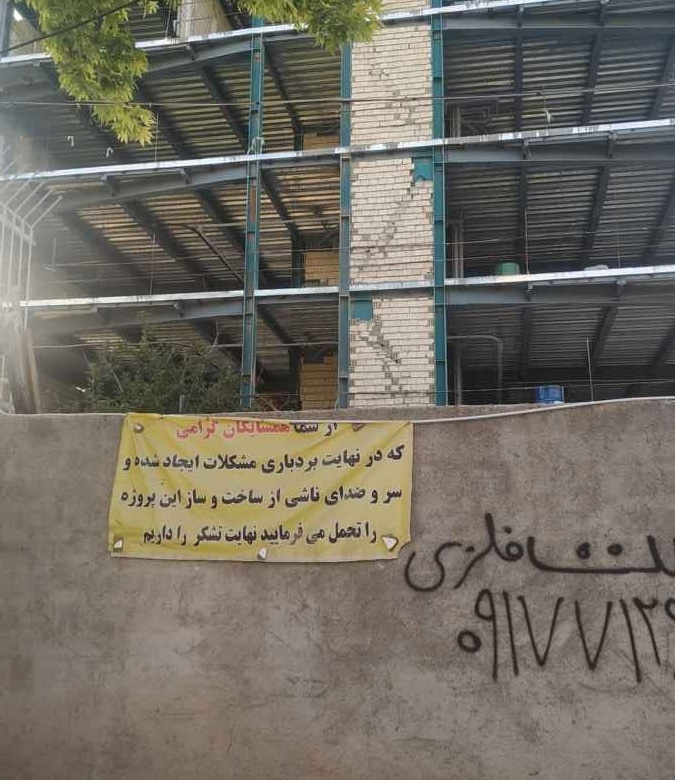 از شما همسایگان گرامی
که در نهایت بردباری مشکلات ایجاد شده و
سر و صدای ناشی از ساخت و ساز این پروژه
را تحمل می فرمایید نهایت تشکر را داریم
فلزی
۰۹۱۷۷۱۲۹